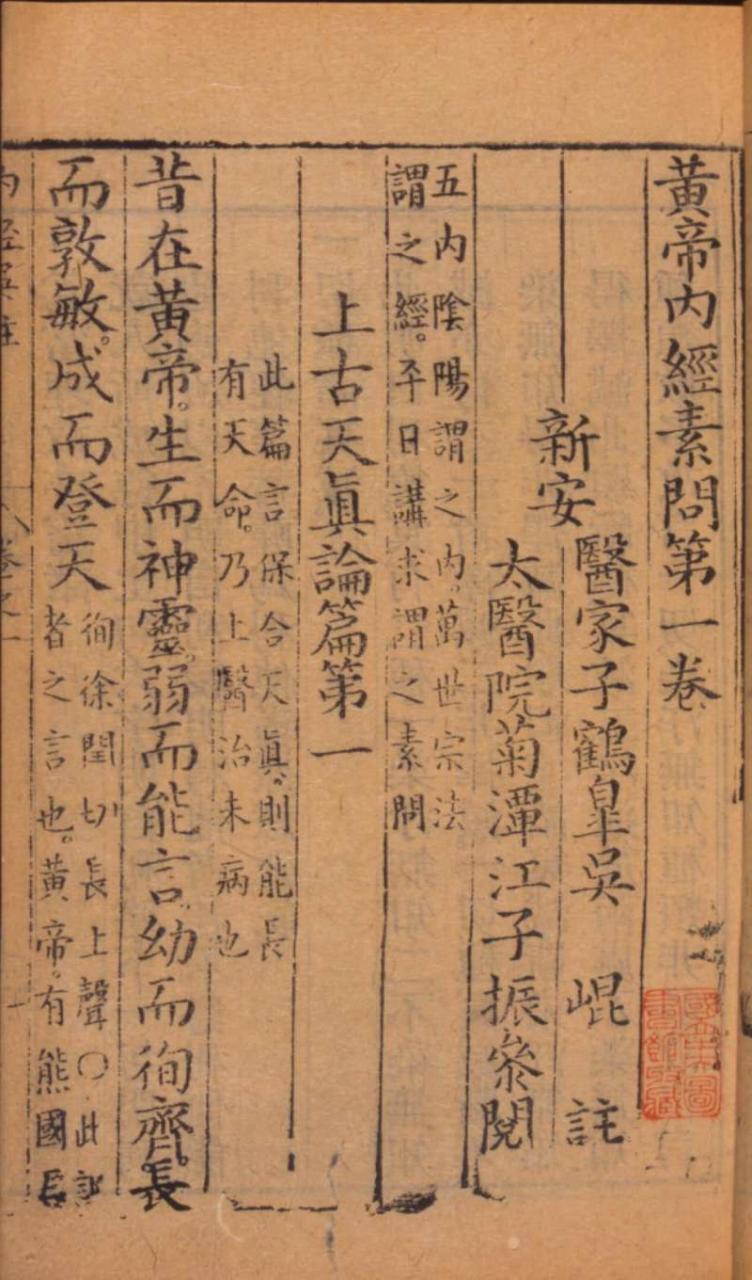 黃帝內經素問第一卷
新安
醫家子鶴臯吳崐註
太醫院菊潭江子振叅閱
五內陰陽謂之內。萬世宗法
謂之經。平日講求謂之素問
上古天眞論篇第一
此篇言保合天眞。則能長
有天命。乃上醫治未病也
昔在黃帝。生而神靈。弱而能言。幼而徇齊。長
而敦敏。成而登天
徇徐閏切長上聲〇此記
者之言也。黃帝。有熊國長
卷之一
國立北平圖書館收藏